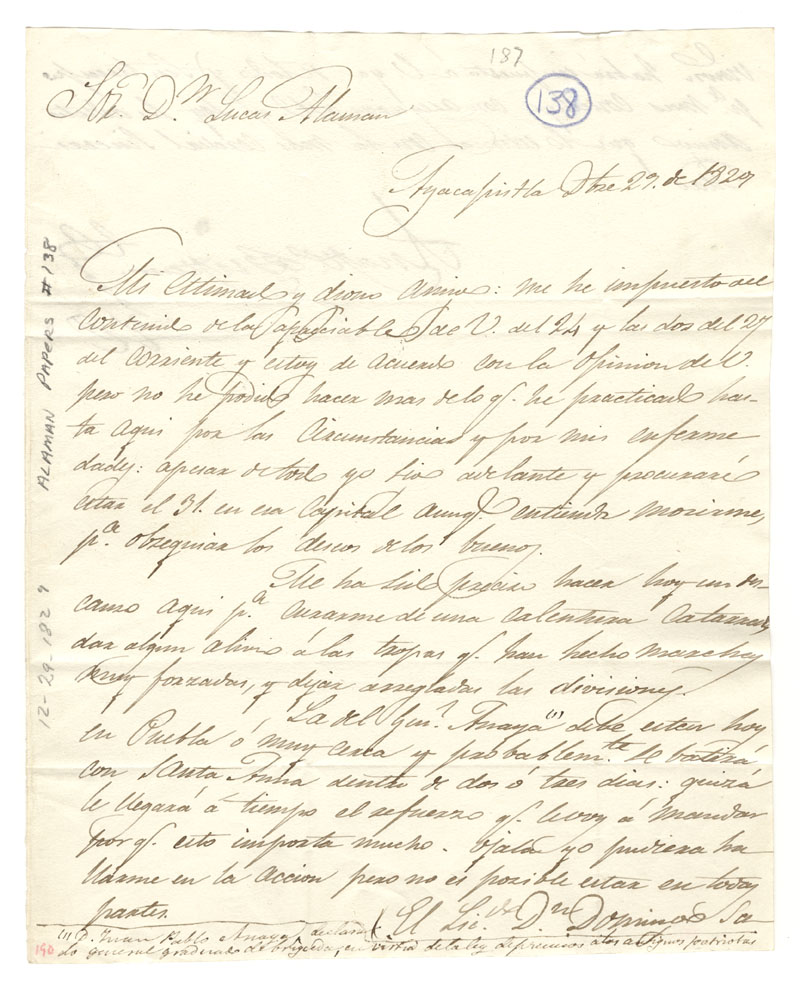 187
138
Sor. D.n Lucas Alaman
Ayacapistla Dbre 29. de 1829
Mi estimado y digno amigo: me he impuesto del
contenido de la apreciable de V. del 24 y las dos del 27
del corriente y estoy de acuerdo con la opinion de V.
pero no he podido hacer mas de lo q.e he practicado has-
ta aqui por las circunstancias y por mis enferme
dades: apesar de todo yo sigo adelante y procuraré
estar el 31. en esa Capital aunq.e entienda morirme,
p.a obsequiar los deseos de los buenos.
Me ha sido preciso hacer hoy un des-
canso aqui p.a curarme de una calentura catarral,
dar algun alivio á las tropas q.e han hecho marchas
muy forzadas, y dejar arregladas las divisiones.
La del Gen.l Anaya (1) debe estar hoy
en Puebla ó muy cerca y probablem.te se batirá
con Santa Anna dentro de dos ó tres dias: quizá
le llegará á tiempo el refuerzo q.e le voy á mandar
por q.e esto importa mucho. Ojalá yo pudiera ha
llarme en la accion pero no es posible estar en todas
partes.
El Lic.do D.n Domingo Sa-
(1) D. Juan Pablo Anaya, declara-
do general graduado de brigada, en virtud de la ley de premios a los antiguos patriotas
190
ALAMAN PAPERS #138
12-29-1829